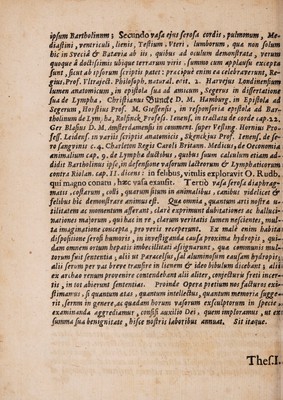 ipsum Bartholinum; Secundo vasa ejus serosa cordis, pulmonum, Me-
diastini, ventriculi, lienis, Testium, Uteri, lumborum, quæ non solum
hic in Svecia & Batavia ab iis, quibus ad oculum demonstrata, verum
quoque à doctissimis ubique terrarum viris, summo cum applausu excepta
sunt, sicut ab ipsorum scriptis patet: præcipuè enim ea celebraverunt, Re-
gius, Prof. Ultraject. Philosoph. natural. edit. 2. Harvejus Londinensium
lumen anatomicum, in epistola sua ad amicum, Segerus in dissertatione
sua de Lympha, Christianus Bunct D. M. Hamburg. in Epistola ad
Segerum, Horstius Prof. M. Giessensis, in responsoria epistola ad Bar-
tholinum de Lympha, Rolfinck, Profess. Jenens. in tractatu de corde cap. 22.
Ger Blasius D. M. Amsterdamensis in comment. super Vesling. Hornius Pro-
fess. Leidens. in variis scriptis anatomicis, Skenckius Prof. Jenens. de se-
ro sangvinis c. 4. Charleton Regis Careli Britann. Medicus, de Oeconomia
animalium cap. 9. de Lympha ductibus, quibus suum calculum etiam ad-
didit Bartholinus ipse, in defensione vasorum lacteorum & Lymphaticorum
contra Riolan. cap. 11. dicens: in felibus, vitulis exploravit O. Rudb.
qui magno conatu, hæc vasa exussit. Tertiò vasa serosa diaphrag-
matis, costarum, colli, quarum situm in animalibus, canibus videlicet &
felibus hic demonstrare animus est. Qua omnia, quantum arti nostræ u-
tilitatem ac momentum afferant, clarè exprimunt dubitationes ac halluci-
nationes majorum, quibus in re, clarum veritatis lumen nescientes, mul-
ta imaginatione concepta, pro veris receperunt. Ex malè enim habita
dispositione serosi humoris, in investiganda causa proxima hydropis, qui-
dam omnem ortum hepatis imbecillitati assignarunt, quæ communis mul-
torum fuit sententia, alii ut Paracelsus, sal aluminosum causam hydropis;
alii serum per vas breve transire in lienem & ideo bibulum dicebant; alii
ex arcbæ renum provenire contendebant alii aliter, conjecturis freti incer-
tis, in tot abierunt sententias. Proinde Opera pretium nos facturos exi-
stimamus, si quantum ætas, quantum intellectus, quantum memoria sugge-
rit, serum in genere, ac quædam horum vasorum exsculptorum in specie,
examinanda aggrediamur, consisi auxilio Dei, quem imploramus, ut ex
summa sua benignitate, hisce nostris laboribus annuat. Sit itaque.
Thes. I.